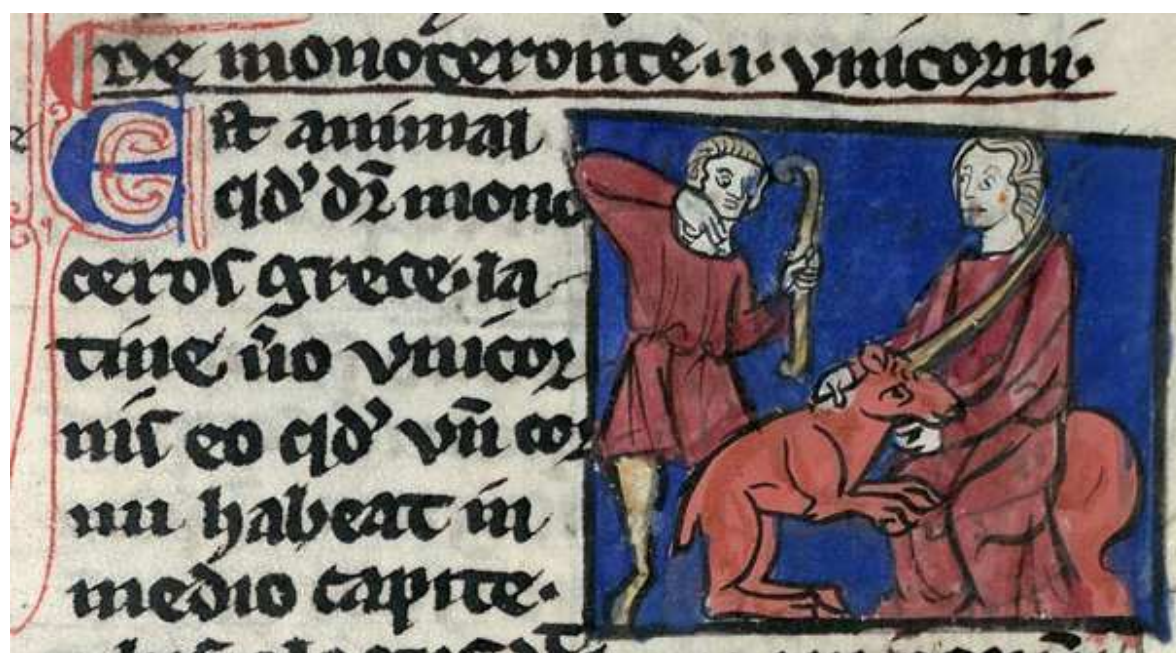 De monoceronte .i. vnicorni.
Est animal
qd' dr̄ mono
ceros grece. la
tine ũo vnicor
nis eo qd' vñ cor
nu habeat in
medio capite.